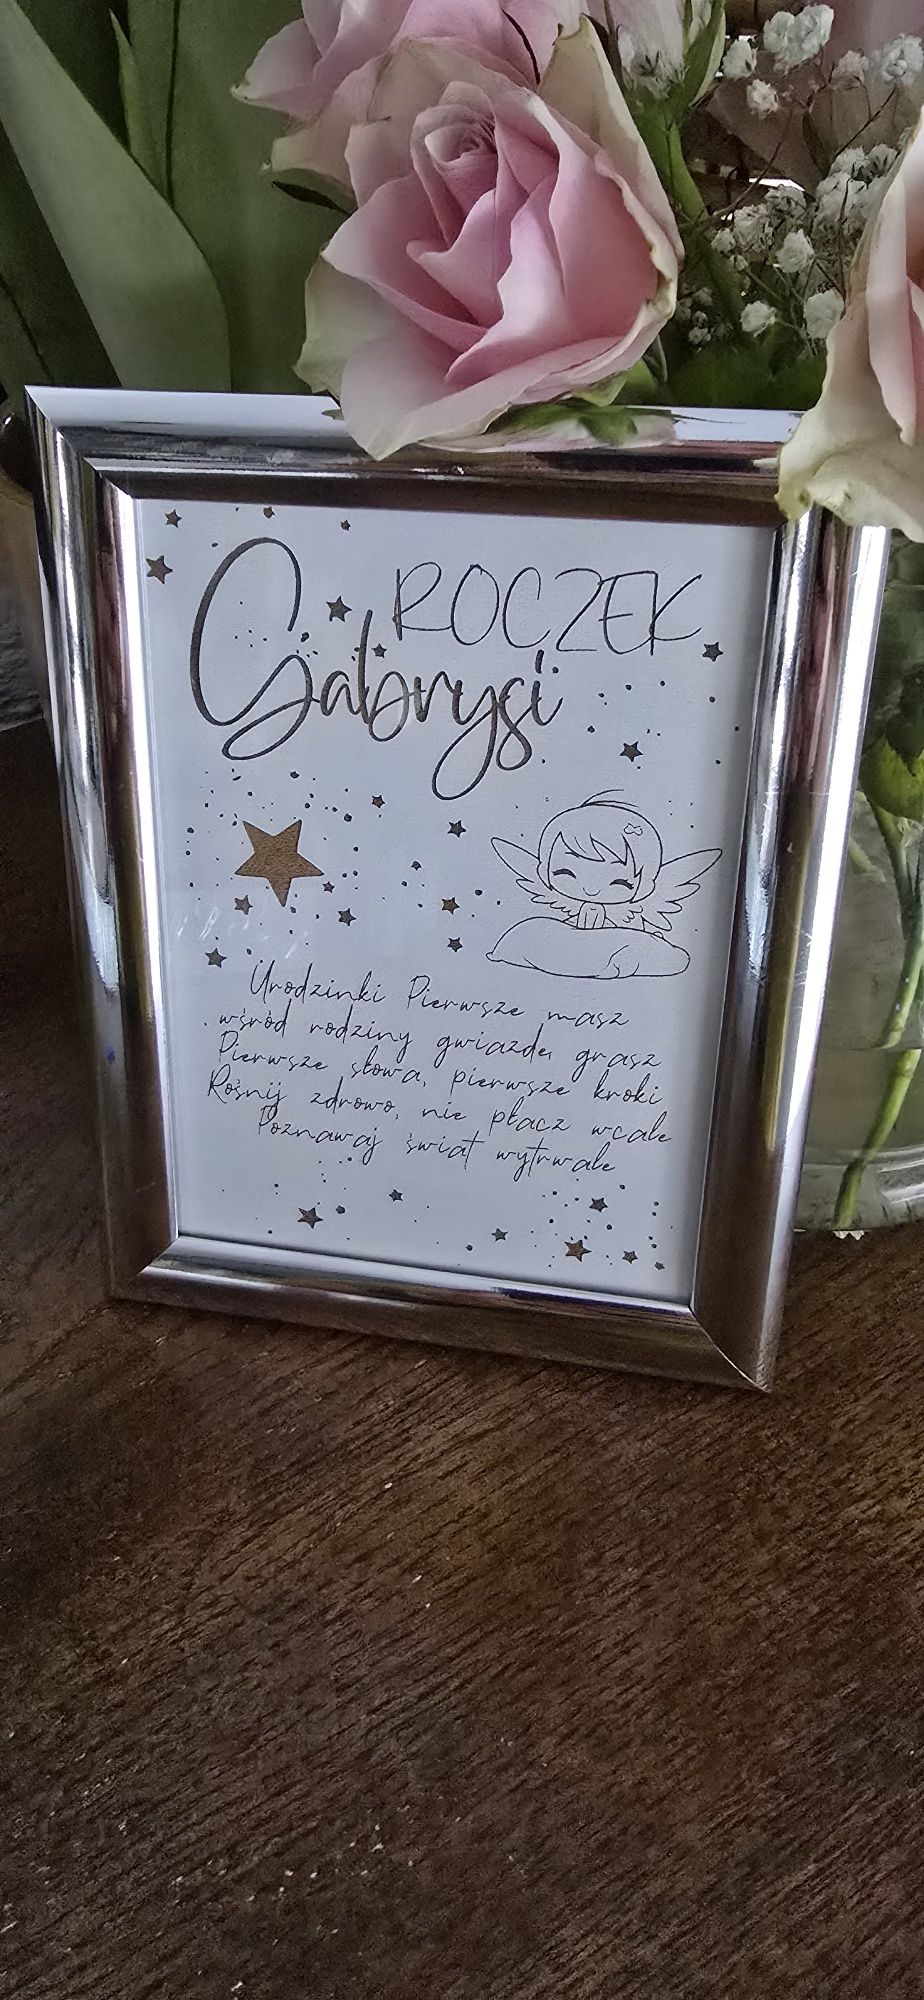 ROCZEK
Gabrysi
Urodzinki Pierwsze masz
wśród rodziny gwiazdę grasz
Pierwsze słowa, pierwsze kroki
Rośnij zdrowo, nie płacz wcale
Poznawaj świat wytrwale